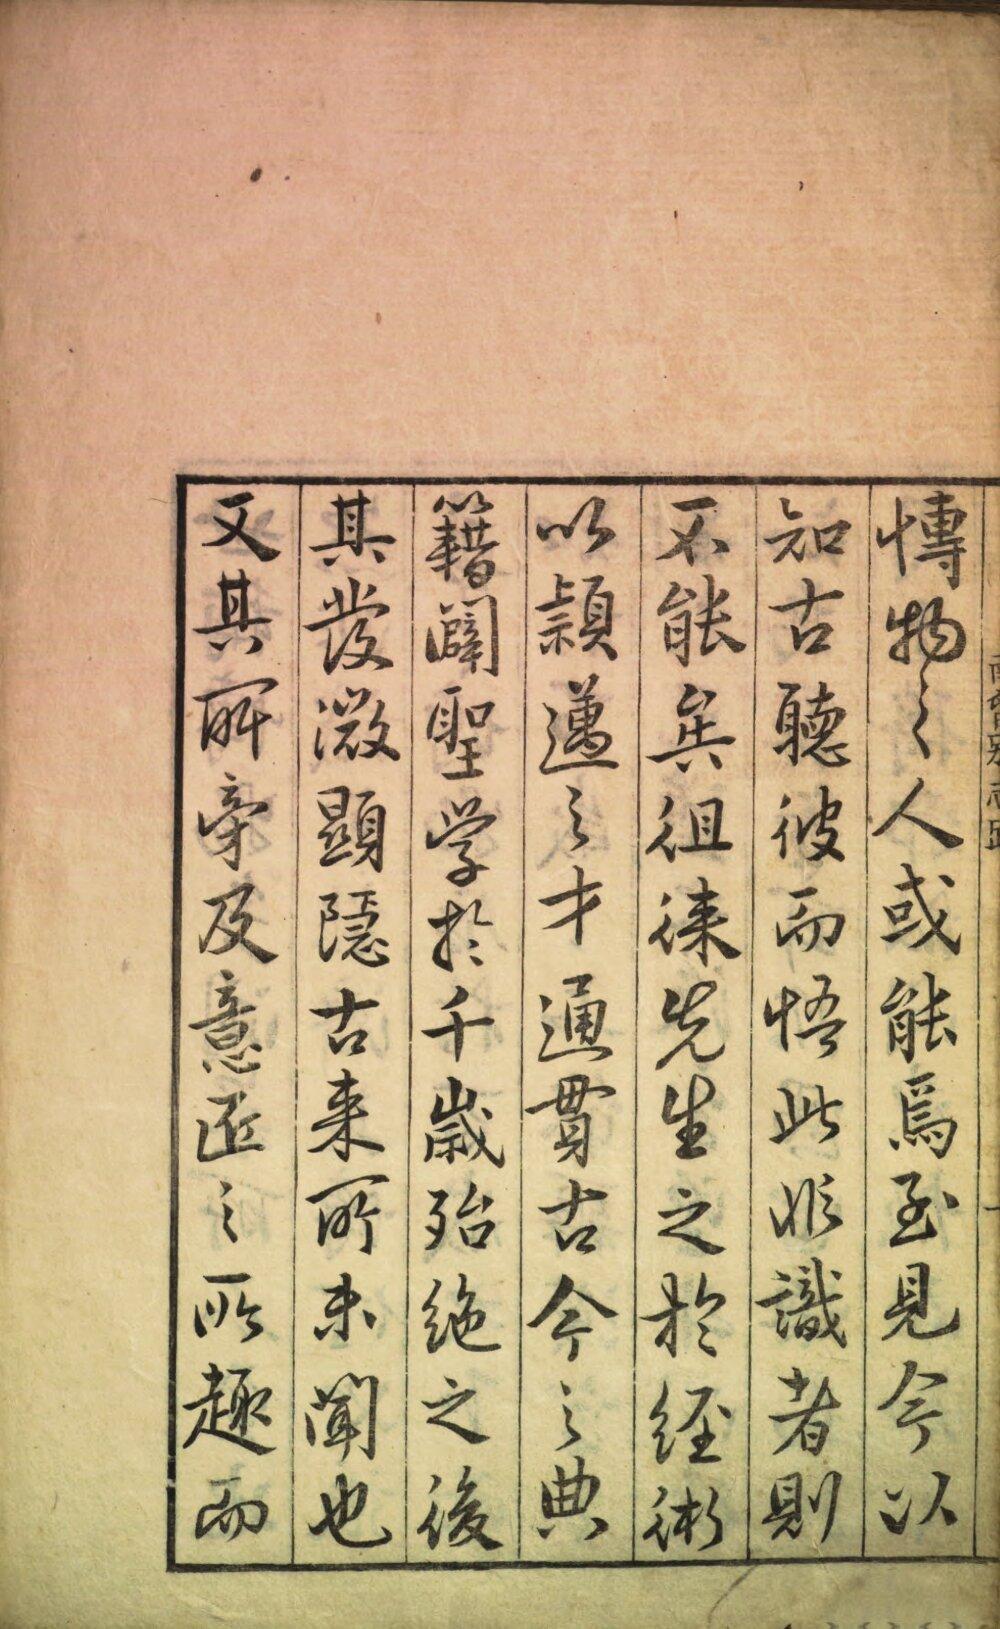 愽物之人或能焉至見今以
知古聽彼而悟此非識者則
不能矣徂徠先生之於經術
以穎邁之才通貫古今之典
籍闢聖学於千歲殆絶之後
其發微顯隱古来所未聞也
又其所旁及意匠之所趣而